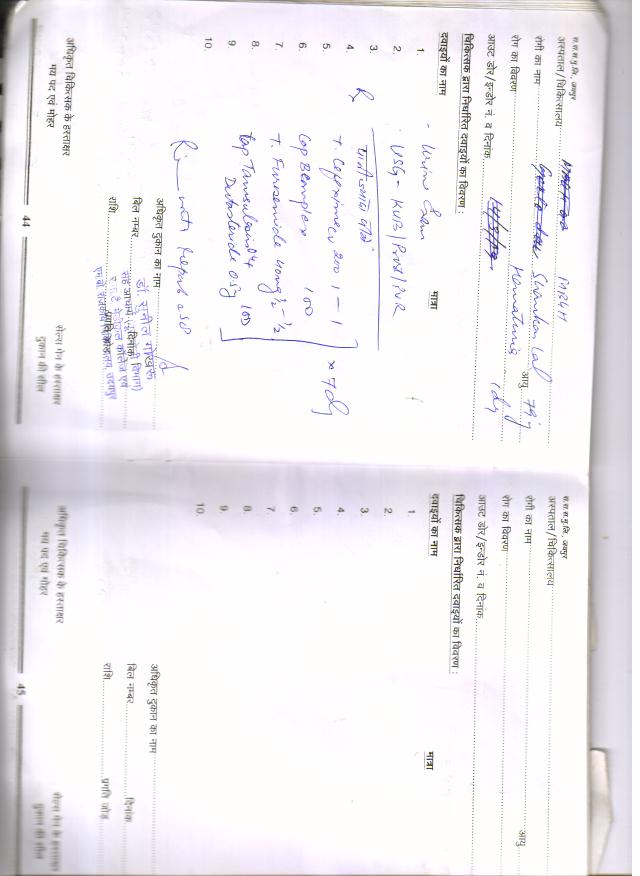 स.स.स.पु.लि., उदयपुर
अस्पताल/चिकित्सालय MBGH
रोगी का नाम Shankar Lal आयु 79y
रोग का विवरण Hematuria
आउट डोर/इन्डोर नं. व दिनांक
चिकित्सक द्वारा निर्धारित दवाइयों का विवरण :
दवाइयों का नाम मात्रा
1. - Urine Exam
2. - USG - KUB/Prost/PVR
3.
4. Rx T. Cefixime CV 200 1 – 1
5. Cap Bcomplex 1 OD
6. T. Furosemide 40mg ½ – ½ x 7 dy
7. Cap Tamsulosin 0.4
8. Dutasteride 0.5 1 OD
9.
10.
R/w with report & SOP
अधिकृत दुकान का नाम
बिल नम्बर दिनांक
राशि प्रगति जोड़
डॉ सुनील
सह आचार्य
मेडिकल कॉलेज एवं
उदयपुर
अधिकृत चिकित्सक के हस्ताक्षर
मय पद एवं मोहर
सेल्स मेन के हस्ताक्षर
दुकान की सील
44
स.स.स.पु.लि., उदयपुर
अस्पताल/चिकित्सालय
रोगी का नाम आयु
रोग का विवरण
आउट डोर/इन्डोर नं. व दिनांक
चिकित्सक द्वारा निर्धारित दवाइयों का विवरण :
दवाइयों का नाम मात्रा
1.
2.
3.
4.
5.
6.
7.
8.
9.
10.
अधिकृत दुकान का नाम
बिल नम्बर दिनांक
राशि प्रगति जोड़
अधिकृत चिकित्सक के हस्ताक्षर
मय पद एवं मोहर
सेल्स मेन के हस्ताक्षर
दुकान की सील
45